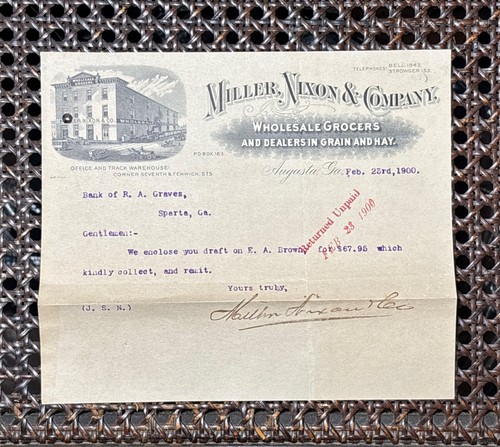 TELEPHONES BELL 1843.
STROWGER 153.
MILLER, NIXON & COMPANY,
WHOLESALE GROCERS
AND DEALERS IN GRAIN AND HAY.
P.O. BOX 163.
OFFICE AND TRACK WAREHOUSE:
CORNER SEVENTH & FENWICK, STS.
Augusta, Ga. Feb. 23rd, 1900.
Bank of R. A. Graves,
Sparta, Ga.
Returned Unpaid
FEB 28 1900
Gentlemen:-
We enclose you draft on E. A. Brown, for $67.95 which
kindly collect, and remit.
Yours truly,
(J. S. N.)
Miller Nixon & Co